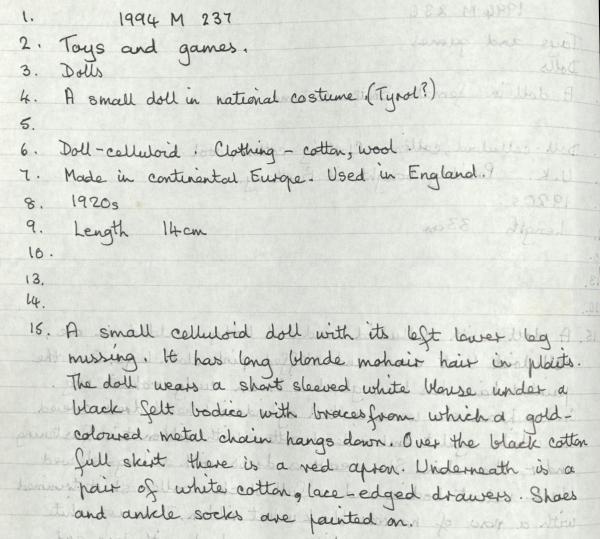 1. 1994 M 237
2. Toys and games.
3. Dolls
4. A small doll in national costume. (Tyrol?)
5.
6. Doll-celluloid. Clothing - cotton, wool.
7. Made in continental Europe. Used in England.
8. 1920s
9. Length 14cm
10.
13.
14.
15. A small celluloid doll with its left lower leg
missing. It has long blonde mohair hair in plaits.
The doll wears a short sleeved white blouse under a
black felt bodice with braces from which a gold-
coloured metal chain hangs down. Over the black cotton
full skirt there is a red apron. Underneath is a
pair of white cotton, lace-edged drawers. Shoes
and ankle socks are painted on.